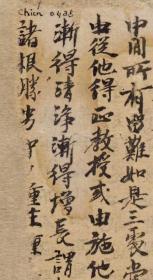 chien 0438
中間所有留難如是三處當
由從他得正教授或由施他
漸得清淨漸得增長謂
諸根勝劣中